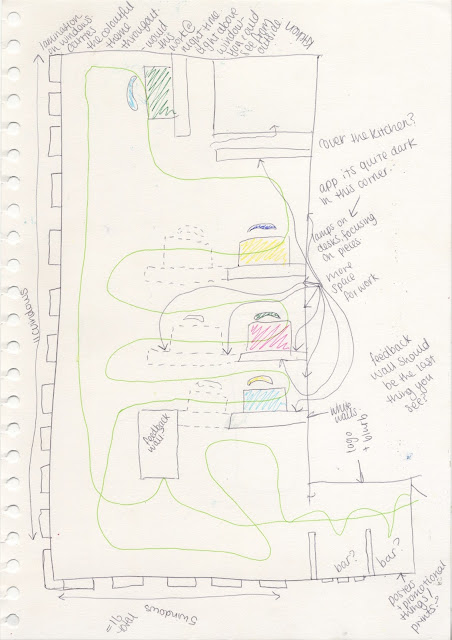 lamination
on windows
carries
the colourful
theme
throughout.
would
this
work @
night time
light above
window -
they could
see from
outside
kitchen
over the kitchen?
app it's quite dark
in this corner.
lamps on
desks, focusing
on pieces
more
space
for work
feedback
wall should
be the last
thing you
see?
white
walls
logo
+ blurb
feedback
wall
11 windows
5 windows
= 16
total
bar?
bar?
poster
'promotional
things' /
prints?